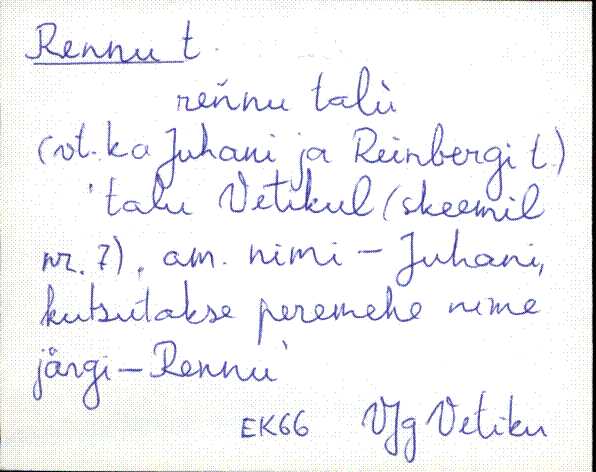 Rennu t.
reňnu talù
(vt. ka Juhani ja Reinbergi t.)
'talu Vetikul (skeemil
nr. 7), am. nimi – Juhani,
kutsutakse peremehe nime
järgi – Rennu'
EK66 VJg Vetiku